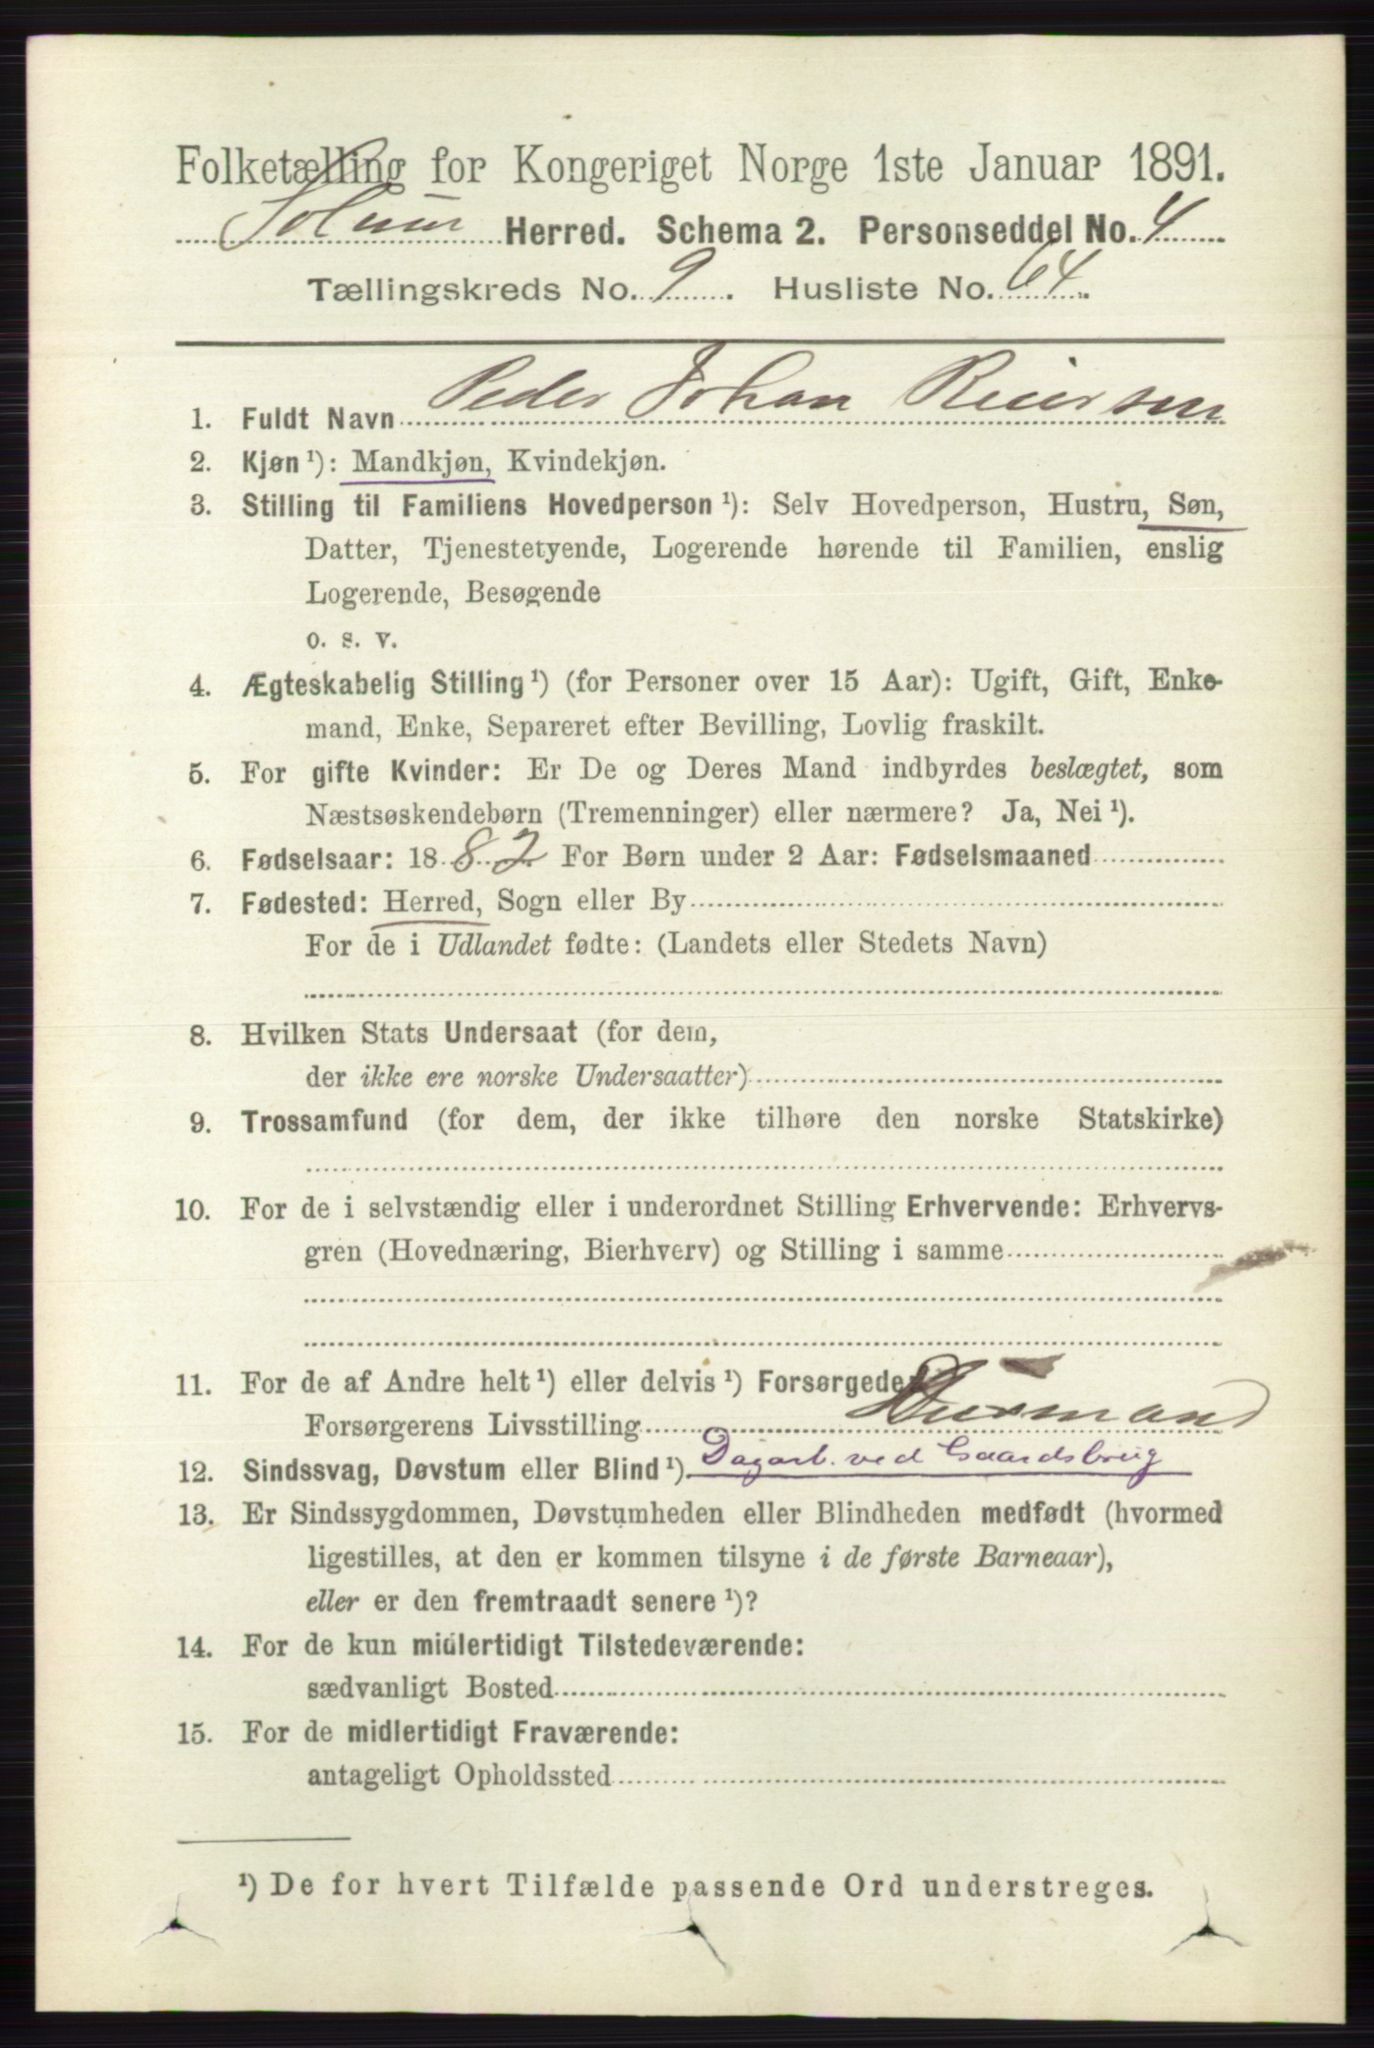 Folketælling for Kongeriget Norge 1ste Januar 1891.
Solum Herred. Schema 2. Personseddel No. 4
Tællingskreds No. 9. Husliste No. 64.
1. Fuldt Navn Peder Johan Reiersen
2. Kjøn ¹): Mandkjøn, Kvindekjøn.
3. Stilling til Familiens Hovedperson ¹): Selv Hovedperson, Hustru, Søn,
Datter, Tjenestetyende, Logerende hørende til Familien, enslig
Logerende, Besøgende
o. s. v.
4. Ægteskabelig Stilling ¹) (for Personer over 15 Aar): Ugift, Gift, Enke-
mand, Enke, Separeret efter Bevilling, Lovlig fraskilt.
5. For gifte Kvinder: Er De og Deres Mand indbyrdes beslægtet, som
Næstsøskendebørn (Tremenninger) eller nærmere? Ja, Nei ¹).
6. Fødselsaar: 1882 For Børn under 2 Aar: Fødselsmaaned
7. Fødested: Herred, Sogn eller By
For de i Udlandet fødte: (Landets eller Stedets Navn)
8. Hvilken Stats Undersaat (for dem,
der ikke ere norske Undersaatter)
9. Trossamfund (for dem, der ikke tilhøre den norske Statskirke)
10. For de i selvstændig eller i underordnet Stilling Erhvervende: Erhvervs-
gren (Hovednæring, Bierhverv) og Stilling i samme
11. For de af Andre helt ¹) eller delvis ¹) Forsørgede:
Forsørgerens Livsstilling Husmand
12. Sindssvag, Døvstum eller Blind ¹). Dagarb. ved Gaardsbrug
13. Er Sindssygdommen, Døvstumheden eller Blindheden medfødt (hvormed
ligestilles, at den er kommen tilsyne i de første Barneaar),
eller er den fremtraadt senere ¹)?
14. For de kun midlertidigt Tilstedeværende:
sædvanligt Bosted
15. For de midlertidigt Fraværende:
antageligt Opholdssted
¹) De for hvert Tilfælde passende Ord understreges.